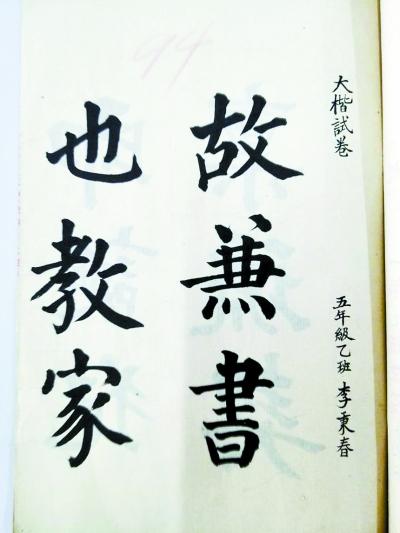 大楷試卷 五年級乙班 李秉春
故兼書
也教家
94